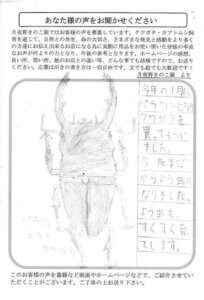 あなた様の声をお聞かせください
月夜野きのこ園ではお客様の声を募集しています。クワガタ・カブトムシ飼
育を通じて、自然との共生、命の大切さ、さまざまな発見と感動をより多く
の方達にお伝え出来るお店になる為に実際に用品をお使い頂いた皆様の率直
なお声が何よりの力となり、今後の参考となります。ホームページの感想、
良い所、悪い所、他のお店との違い等、どんな事でも結構ですので、お送り
ください。応募はがきの書き方は一切自由です。文でも絵でも大歓迎です！
月夜野きのこ園 より
今年の1月に
ペラワンヒラタ
クワガタを
買ってもらい
ました。
たまご
から よう虫に
なりました。
よう虫も、
すくすく育っ
ています。
このお客様の声を書籍など紙面やホームページなどで、ご紹介させていた
だくことがございます。ご了承の上お送り下さい。